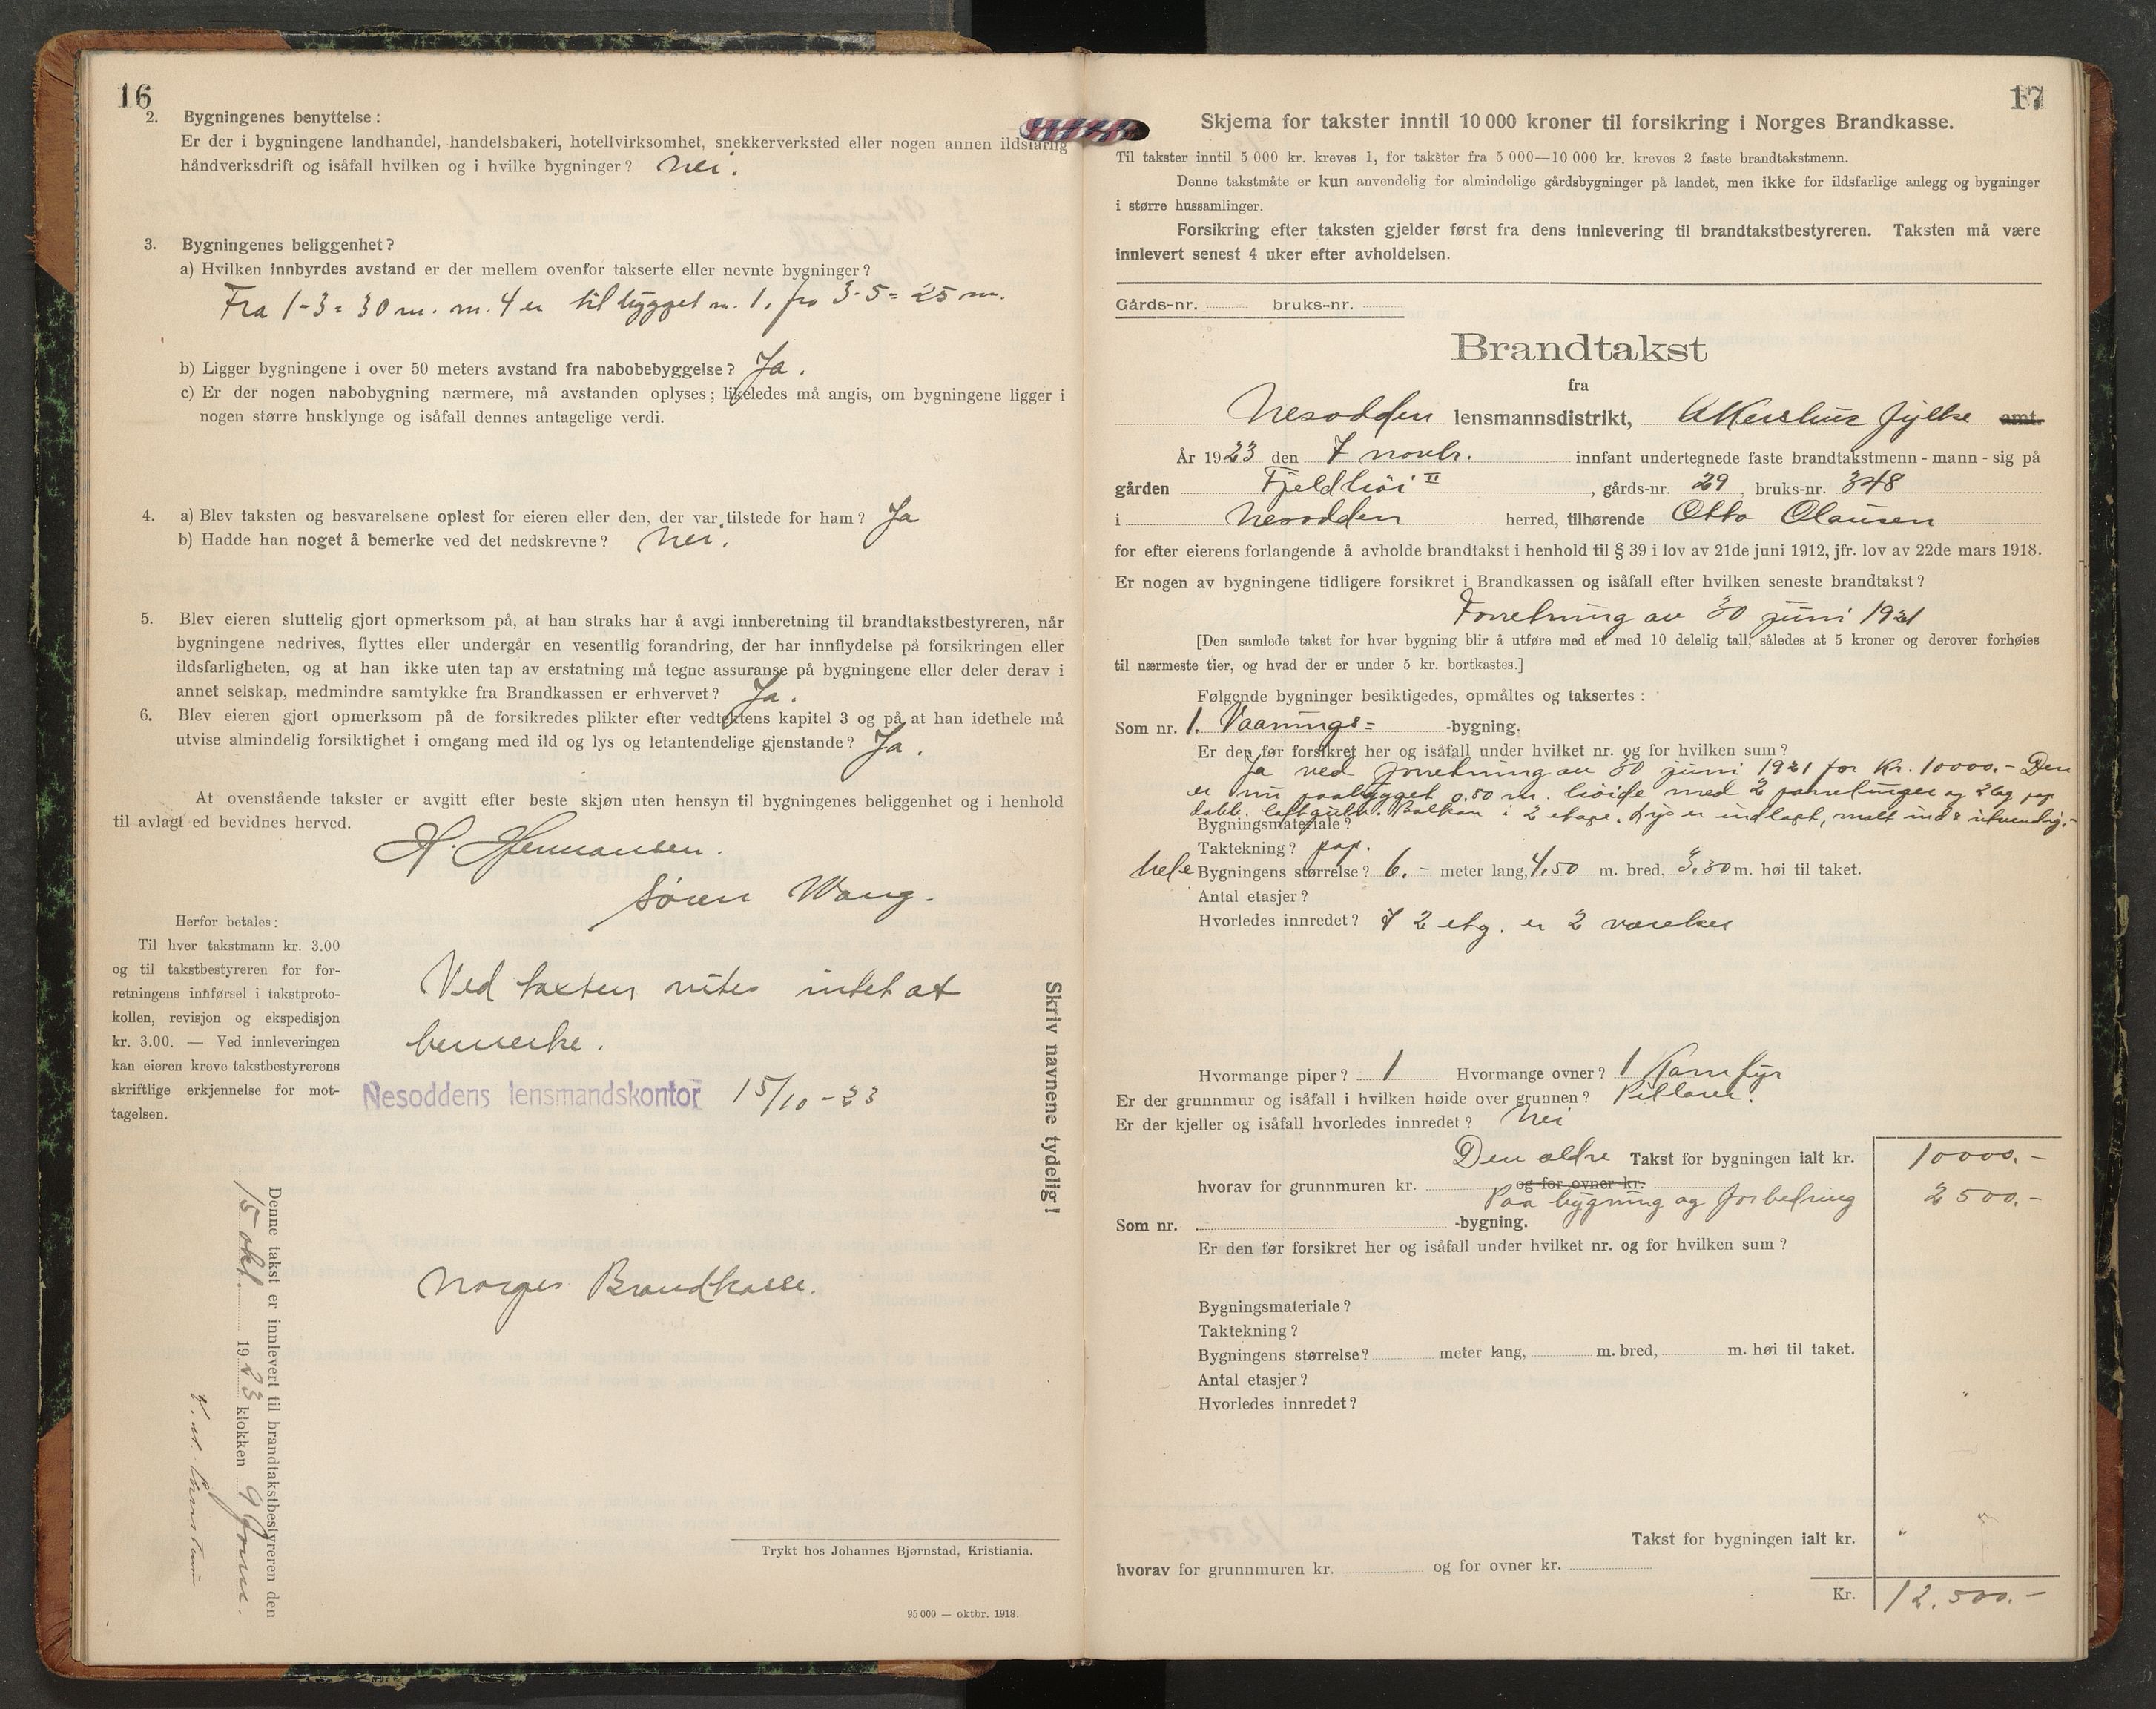 16
2. Bygningenes benyttelse:
Er der i bygningene landhandel, handelsbakeri, hotellvirksomhet, snekkerverksted eller nogen annen ildsfarlig
håndverksdrift og isåfall hvilken og i hvilke bygninger? Nei.
3. Bygningenes beliggenhet?
a) Hvilken innbyrdes avstand er der mellem ovenfor takserte eller nevnte bygninger?
Fra 1-3 = 30 m. m. 4 er tilbygget m. 1, fra 3-5 = 25 m.
b) Ligger bygningene i over 50 meters avstand fra nabobebyggelse? Ja.
c) Er der nogen nabobygning nærmere, må avstanden oplyses; likeledes må angis, om bygningene ligger i
nogen større husklynge og isåfall dennes antagelige verdi.
4. a) Blev taksten og besvarelsene oplest for eieren eller den, der var tilstede for ham? Ja
b) Hadde han noget å bemerke ved det nedskrevne? Nei.
5. Blev eieren sluttelig gjort opmerksom på, at han straks har å avgi innberetning til brandtakstbestyreren, når
bygningene nedrives, flyttes eller undergår en vesentlig forandring, der har innflydelse på forsikringen eller
ildsfarligheten, og at han ikke uten tap av erstatning må tegne assuranse på bygningene eller deler derav i
annet selskap, medmindre samtykke fra Brandkassen er erhvervet? Ja.
6. Blev eieren gjort opmerksom på de forsikredes plikter efter vedtektens kapitel 3 og på at han idethele må
utvise almindelig forsiktighet i omgang med ild og lys og letantendelige gjenstande? Ja.
At ovenstående takster er avgitt efter beste skjøn uten hensyn til bygningenes beliggenhet og i henhold
til avlagt ed bevidnes herved.
H. Hermansen.
Søren Wang.
Herfor betales:
Til hver takstmann kr. 3.00
og til takstbestyreren for for-
retningens innførsel i takstproto-
kollen, revisjon og ekspedisjon
kr. 3.00. — Ved innleveringen
kan eieren kreve takstbestyrerens
skriftlige erkjennelse for mot-
tagelsen.
Ved taxten vites intet at
bemerke.
Nesoddens lensmandskontor 15/10-23
Norges Brandkasse.
Skriv navnene tydelig!
Denne takst er innlevert til brandtakstbestyreren den
15 okt. 1923 klokken 9 form.
Trykt hos Johannes Bjørnstad, Kristiania.
95 000 — oktbr. 1918.
17
Skjema for takster inntil 10 000 kroner til forsikring i Norges Brandkasse.
Til takster inntil 5 000 kr. kreves 1, for takster fra 5 000—10 000 kr. kreves 2 faste brandtakstmenn.
Denne takstmåte er kun anvendelig for almindelige gårdsbygninger på landet, men ikke for ildsfarlige anlegg og bygninger
i større hussamlinger.
Forsikring efter taksten gjelder først fra dens innlevering til brandtakstbestyreren. Taksten må være
innlevert senest 4 uker efter avholdelsen.
Gårds-nr. bruks-nr.
Brandtakst
fra
Nesodden lensmannsdistrikt, Akershus fylke amt.
År 1923 den 7 novbr. innfant undertegnede faste brandtakstmenn - mann - sig på
gården Fjeldhøi II, gårds-nr. 29, bruks-nr. 348
i Nesodden herred, tilhørende Otto Olausen
for efter eierens forlangende å avholde brandtakst i henhold til § 39 i lov av 21de juni 1912, jfr. lov av 22de mars 1918.
Er nogen av bygningene tidligere forsikret i Brandkassen og isåfall efter hvilken seneste brandtakst?
Forretning av 30 juni 1921
[Den samlede takst for hver bygning blir å utføre med et med 10 delelig tall, således at 5 kroner og derover forhøies
til nærmeste tier, og hvad der er under 5 kr. bortkastes.]
Følgende bygninger besiktigedes, opmåltes og taksertes:
Som nr. 1. Vaanings= -bygning.
Er den før forsikret her og isåfall under hvilket nr. og for hvilken sum?
Ja ved forretning av 30 juni 1921 for Kr. 10000.- Den
er nu paabygget 0.80 m. høide med 2 og 2 lag pap
dobb. loftgulv. Balkon i 2 etage. Lys er indlagt, malt ind & utvendig.-
Bygningsmateriale?
Taktekning? pap.
hele Bygningens størrelse? 6.- meter lang, 4,50 m. bred, 3.80 m. høi til taket.
Antal etasjer?
Hvorledes innredet? I 2 etg. er 2 værelser
Hvormange piper? 1 Hvormange ovner? 1 Komfyr
Er der grunnmur og isåfall i hvilken høide over grunnen? Pillarer.
Er der kjeller og isåfall hvorledes innredet? Nei
Den ældre Takst for bygningen ialt kr. 10000.-
hvorav for grunnmuren kr. og for ovner kr.
Paa bygning og forbedring 2500.-
Som nr. -bygning.
Er den før forsikret her og isåfall under hvilket nr. og for hvilken sum?
Bygningsmateriale?
Taktekning?
Bygningens størrelse? meter lang, m. bred, m. høi til taket.
Antal etasjer?
Hvorledes innredet?
Takst for bygningen ialt kr.
hvorav for grunnmuren kr. og for ovner kr.
Kr. 12.500.-